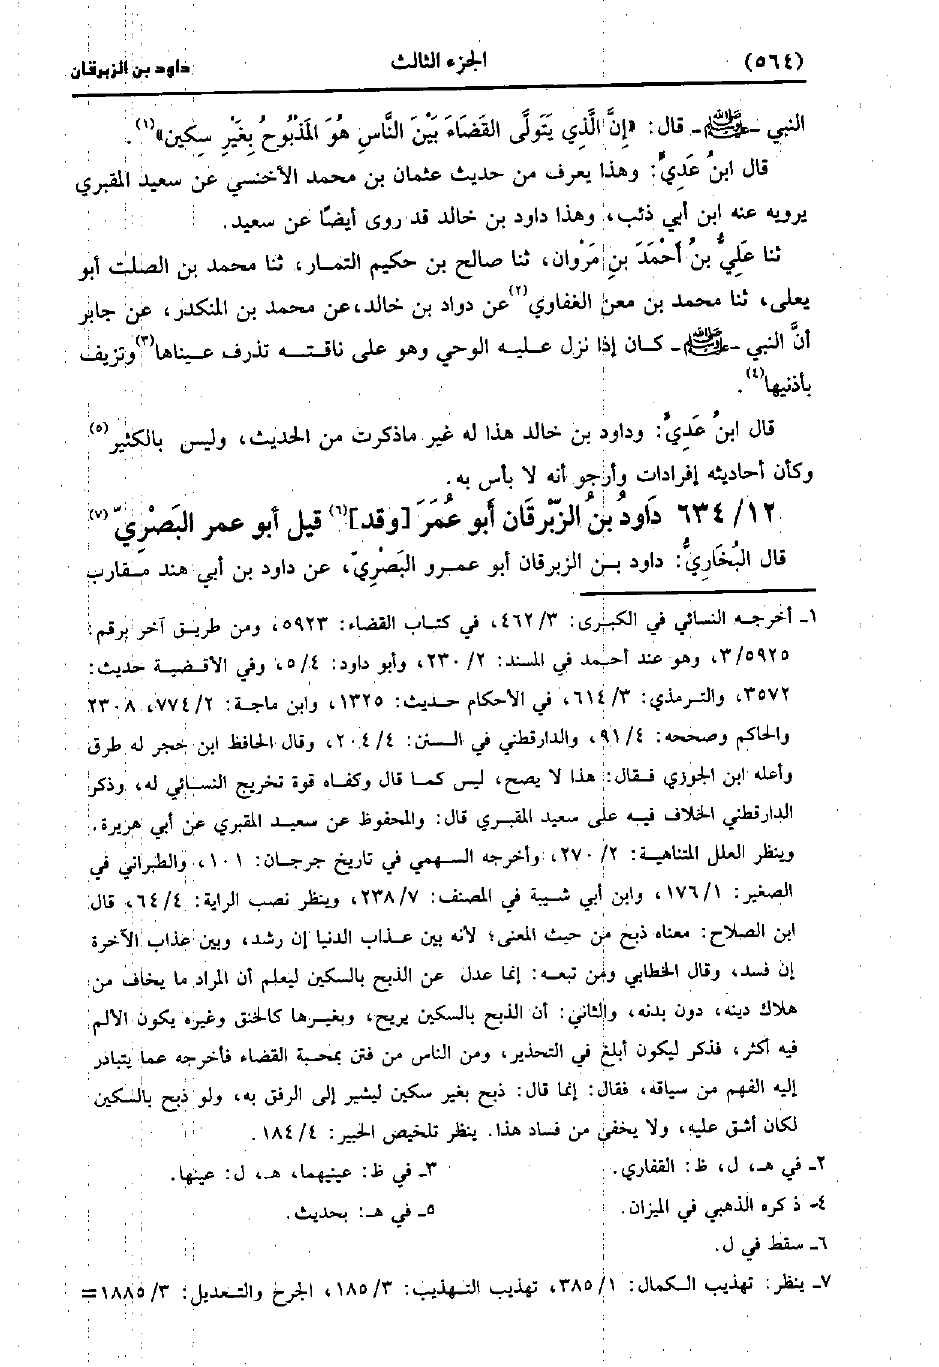 (٥٦٤) الجزء الثالث داود بن الزبرقان
النبي ـ ﷺ ـ قال: «إِنَّ الَّذِي يَتَوَلَّى القَضَاءَ بَيْنَ النَّاسِ هُوَ المَذْبُوحُ بِغَيْرِ سِكين»(١).
قال ابنُ عَدِيٍّ: وهذا يعرف من حديث عثمان بن محمد الأخنسي عن سعيد المقبري
يرويه عنه ابن أبي ذئب، وهذا داود بن خالد قد روى أيضًا عن سعيد.
ثنا عَلِيُّ بنُ أَحْمَدَ بنِ مَرْوان، ثنا صالح بن حكيم التمار، ثنا محمد بن الصلت أبو
يعلى، ثنا محمد بن معن الغفاوي(٢) عن دواد بن خالد، عن محمد بن المنكدر، عن جابر
أنَّ النبي ـ ﷺ ـ كان إذا نزل عليه الوحي وهو على ناقته تذرف عيناها(٣) وتزيف
بأذنيها(٤).
قال ابنُ عَدِيٍّ: وداود بن خالد هذا له غير ماذكرت من الحديث، وليس بالكثير(٥)
وكأن أحاديثه إفرادات وأرجو أنه لا بأس به.
٦٣٤/١٢ دَاودُ بنُ الزِّبْرِقَان أَبو عُمَرَ [وقد](٦) قيل أبو عمر البَصْرِيّ(٧)
قال البُخَاريُّ: داود بن الزبرقان أبو عمرو البَصْرِيّ، عن داود بن أبي هند مقارب
١ـ أخرجه النسائي في الكبرى: ٤٦٢/٣، في كتاب القضاء: ٥٩٢٣، ومن طريق آخر برقم:
٣/٥٩٢٥، وهو عند أحمد في المسند: ٢٣٠/٢، وأبو داود: ٥/٤، وفي الأقضية حديث:
٣٥٧٢، والترمذي: ٦١٤/٣، في الأحكام حديث: ١٣٢٥، وابن ماجة: ٧٧٤/٢، ٢٣٠٨
والحاكم وصححه: ٩١/٤، والدارقطني في السنن: ٢٠٤/٤، وقال الحافظ ابن حجر له طرق
وأعله ابن الجوزي فقال: هذا لا يصح، ليس كما قال وكفاه قوة تخريج النسائي له، وذكر
الدارقطني الخلاف فيه على سعيد المقبري قال: والمحفوظ عن سعيد المقبري عن أبي هريرة.
وينظر العلل المتناهية: ٢٧٠/٢، وأخرجه السهمي في تاريخ جرجان: ١٠١، والطبراني في
الصغير: ١٧٦/١، وابن أبي شيبة في المصنف: ٢٣٨/٧، وينظر نصب الراية: ٦٤/٤، قال
ابن الصلاح: معناه ذبح من حيث المعنى؛ لأنه بين عذاب الدنيا إن رشد، وبين عذاب الآخرة
إن فسد، وقال الخطابي ومن تبعه: إنما عدل عن الذبح بالسكين ليعلم أن المراد ما يخاف من
هلاك دينه، دون بدنه، والثاني: أن الذبح بالسكين يريح، وبغيرها كالخنق وغيره يكون الألم
فيه أكثر، فذكر ليكون أبلغ في التحذير، ومن الناس من فتن بمحبة القضاء فأخرجه عما يتبادر
إليه الفهم من سياقه، فقال: إنما قال: ذبح بغير سكين ليشير إلى الرفق به، ولو ذبح بالسكين
لكان أشق عليه، ولا يخفى من فساد هذا. ينظر تلخيص الحبير: ١٨٤/٤.
٢ـ في هـ، ل، ظ: القفاري. ٣ـ في ظ: عينيهما، هـ، ل: عينها.
٤ـ ذكره الذهبي في الميزان. ٥ـ في هـ: بحديث.
٦ـ سقط في ل.
٧ـ ينظر: تهذيب الكمال: ٣٨٥/١، تهذيب التهذيب: ١٨٥/٣، الجرح والتعديل: ١٨٨٥/٣=